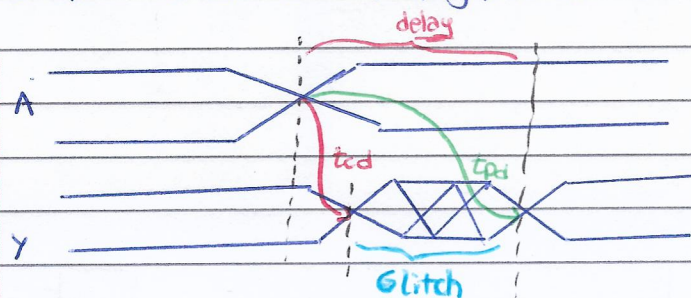 delay
A
tcd
tpd
Y
Glitch